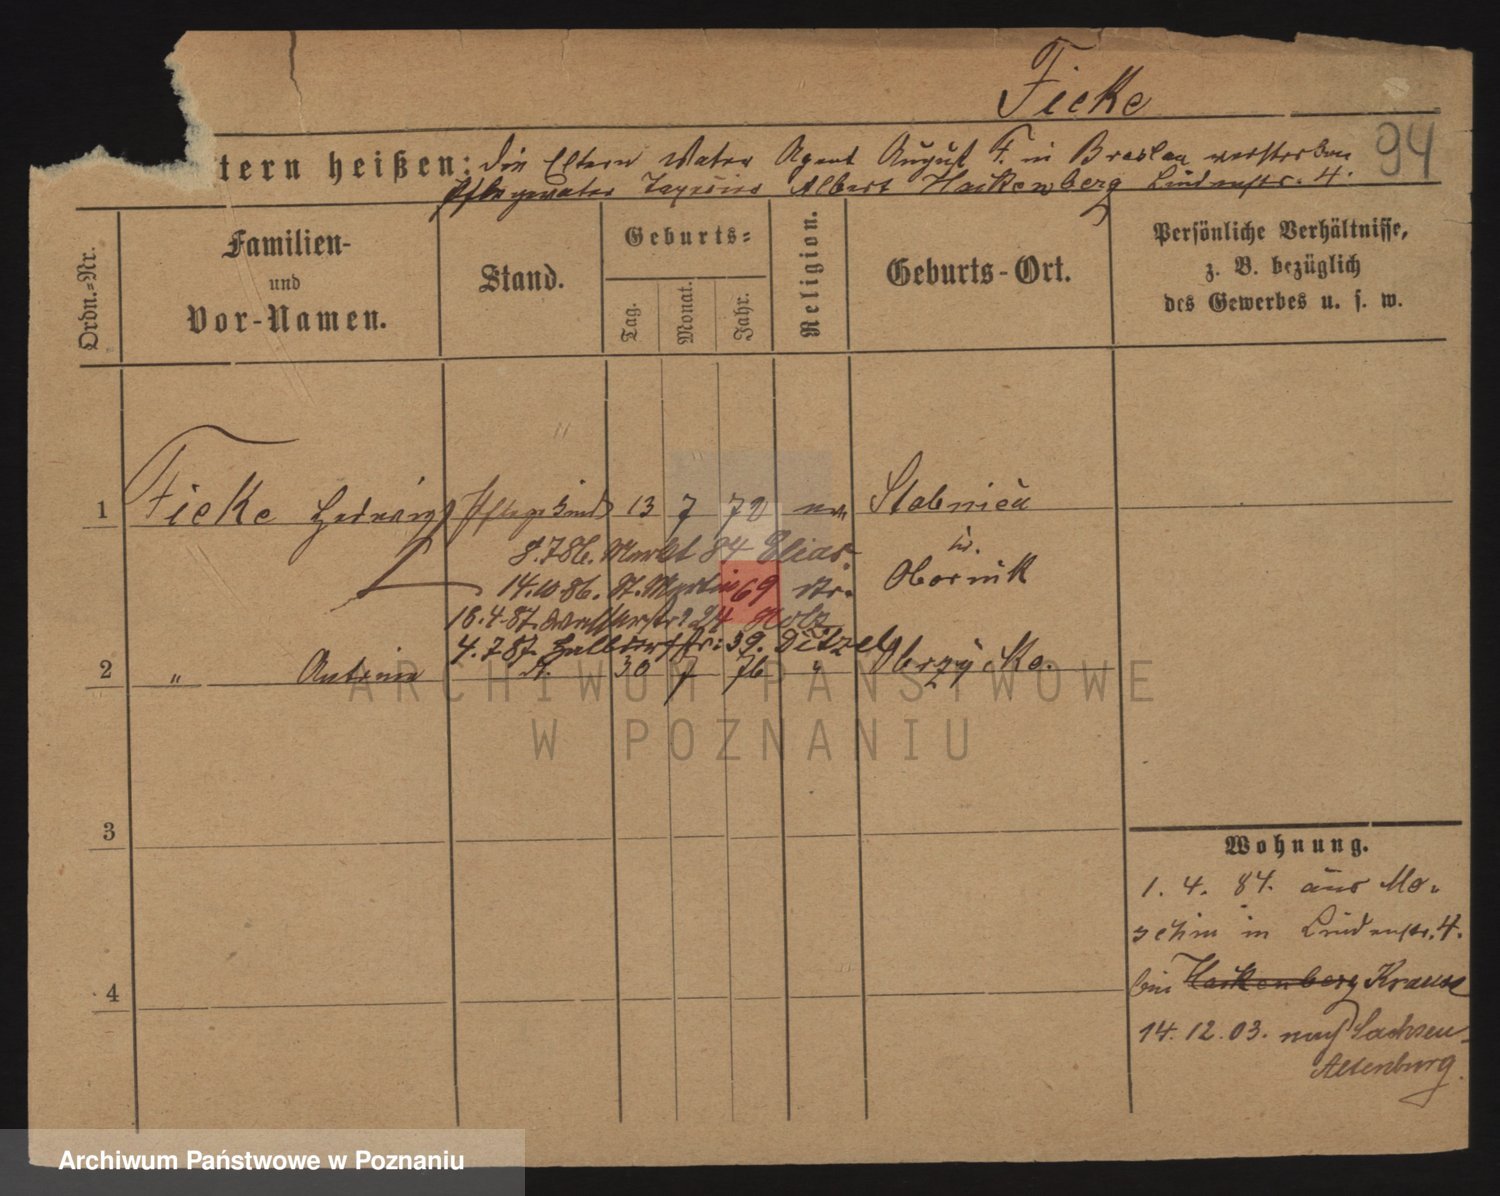 Ficke
94
tern heißen: Die Eltern Vater Agent August F. in Breslau verstorben
Pflegevater Albert Hackenberg Lindenstr. 4.
Ordn.-Nr.
Familien-
und
Vor-Namen.
Stand.
Geburts-
Tag.
Monat.
Jahr.
Religion.
Geburts-Ort.
Persönliche Verhältnisse,
z. B. bezüglich
des Gewerbes u. s. w.
1 Ficke Hedwig Pflegekind 13 7 72 ev
8.7.86. Markt 84 Elias.
14.10.86. St. Martin 69
Obornik
18.4.87. 24 Holz
4.7.87. Halbdorfstr: 39. Ditzel
2 " 30 7 76 " Obrzycko.
ARCHIWUM PAŃSTWOWE
W POZNANIU
3
Wohnung.
1. 4. 84. aus Mo-
schin in Lindenstr. 4.
bei Hackenberg Krause
4
14. 12. 03. nach Sachsen-
Altenburg.
Archiwum Państwowe w Poznaniu